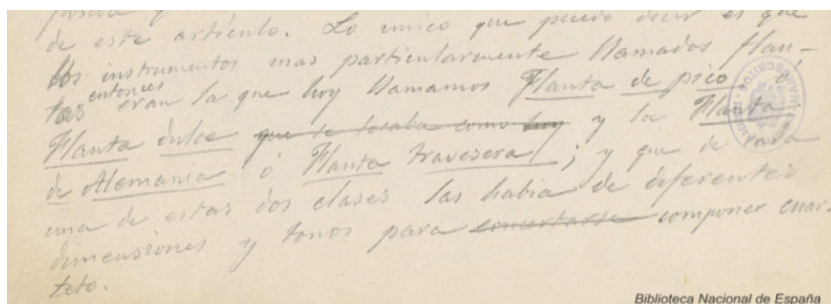 de este artículo. Lo unico que puedo decir es que
los instrumentos mas particularmente llamados flau-
tas entonces eran la que hoy llamamos Flauta de pico ó
Flauta dulce que se tocaba como hoy y la Flauta
de Alemania ó Flauta travesera; y que de cada
una de estas dos clases las habia de diferentes
dimensiones y tonos para concertarse componer cuar-
teto.
Biblioteca Nacional de España